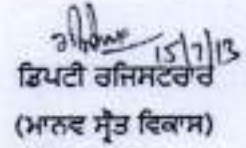 15/7/13
ਡਿਪਟੀ ਰਜਿਸਟਰਾਰ
(ਮਾਨਵ ਸ੍ਰੋਤ ਵਿਕਾਸ)